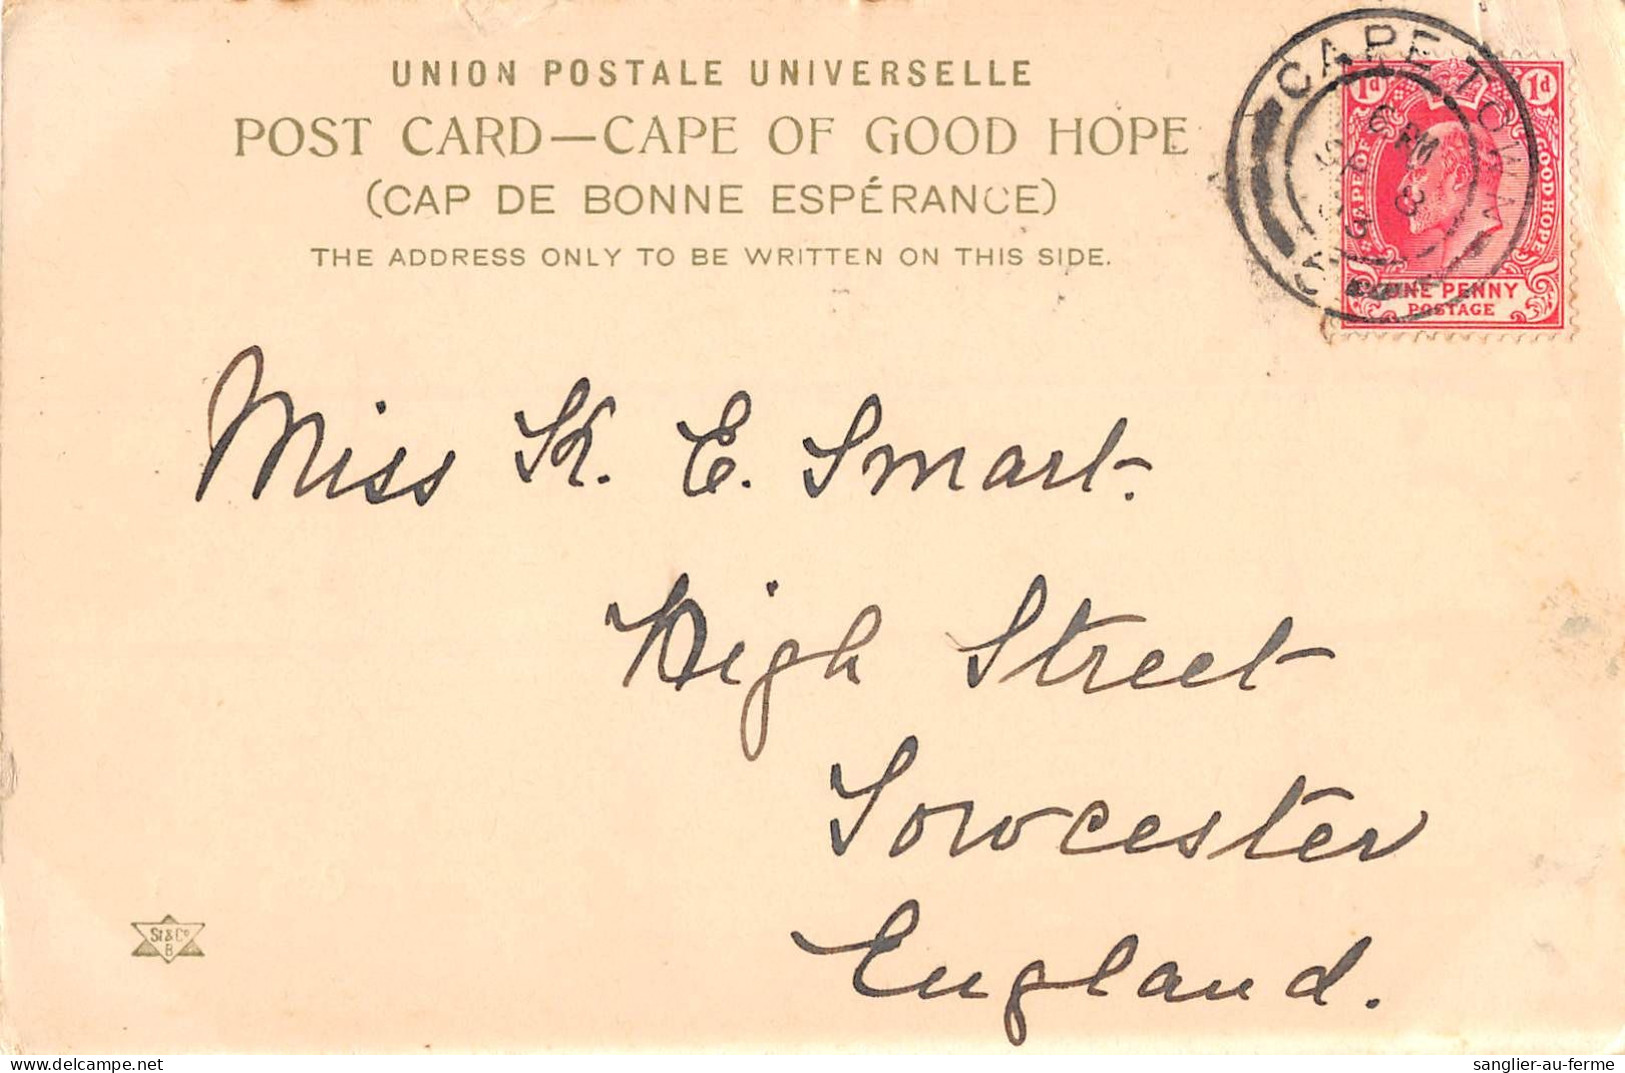 UNION POSTALE UNIVERSELLE
POST CARD—CAPE OF GOOD HOPE
(CAP DE BONNE ESPÉRANCE)
THE ADDRESS ONLY TO BE WRITTEN ON THIS SIDE.
CAPE TOWN
6 PM
1d 1d
CAPE OF GOOD HOPE
ONE PENNY
POSTAGE
Miss K. E. Smart.
High Street
Towcester
England.
St & Co
B
sanglier-au-ferme